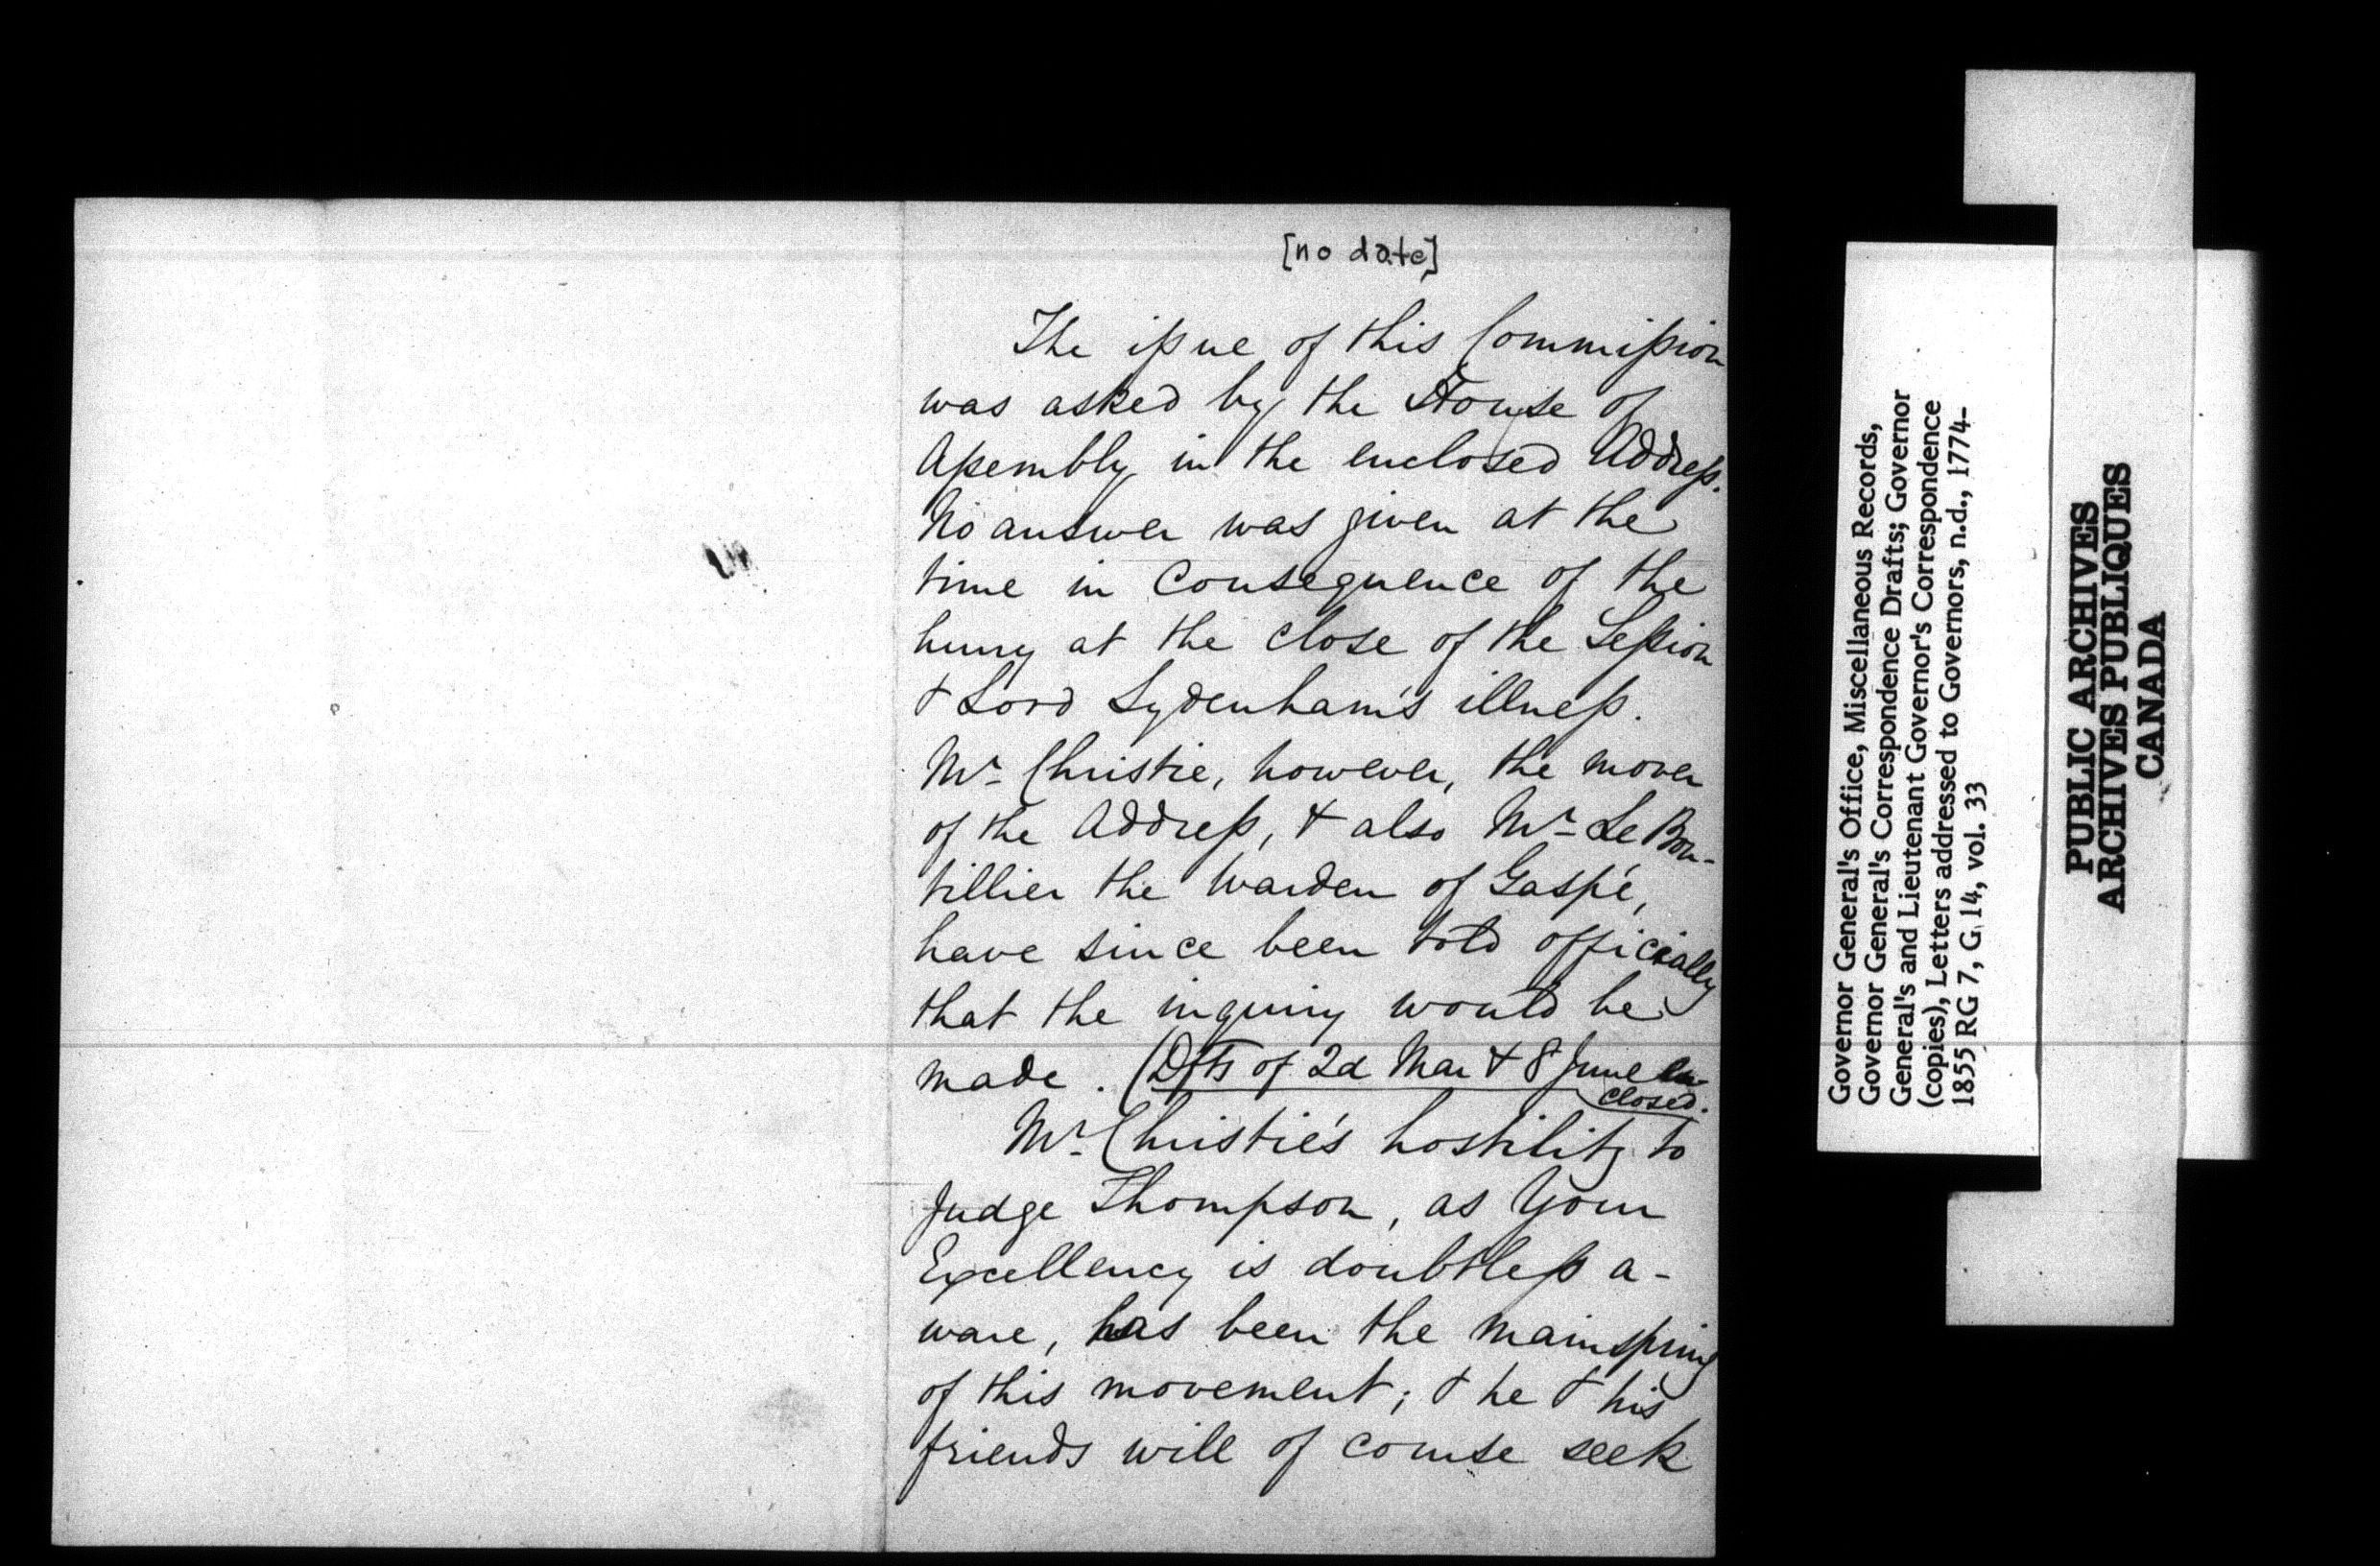 [no date]
The issue of this Commission
was asked by the House of
Assembly in the enclosed Address.
No answer was given at the
time in Consequence of the
hurry at the close of the Session
& Lord Sydenham's illness.
Mr. Christie, however, the mover
of the Address, & also Mr. Le Bou-
tillier the Warden of Gaspé,
have since been told officially
that the inquiry would be
made. (Dfts of 2d Mar & 8 June en-
closed.
Mr. Christie's hostility to
Judge Thompson, as Your
Excellency is doubtless a-
ware, has been the mainspring
of this movement; & he & his
friends will of course seek
Governor General's Office, Miscellaneous Records,
Governor General's Correspondence Drafts; Governor
General's and Lieutenant Governor's Correspondence
(copies), Letters addressed to Governors, n.d., 1774-
1855 RG 7, G 14, vol. 33
PUBLIC ARCHIVES
ARCHIVES PUBLIQUES
CANADA